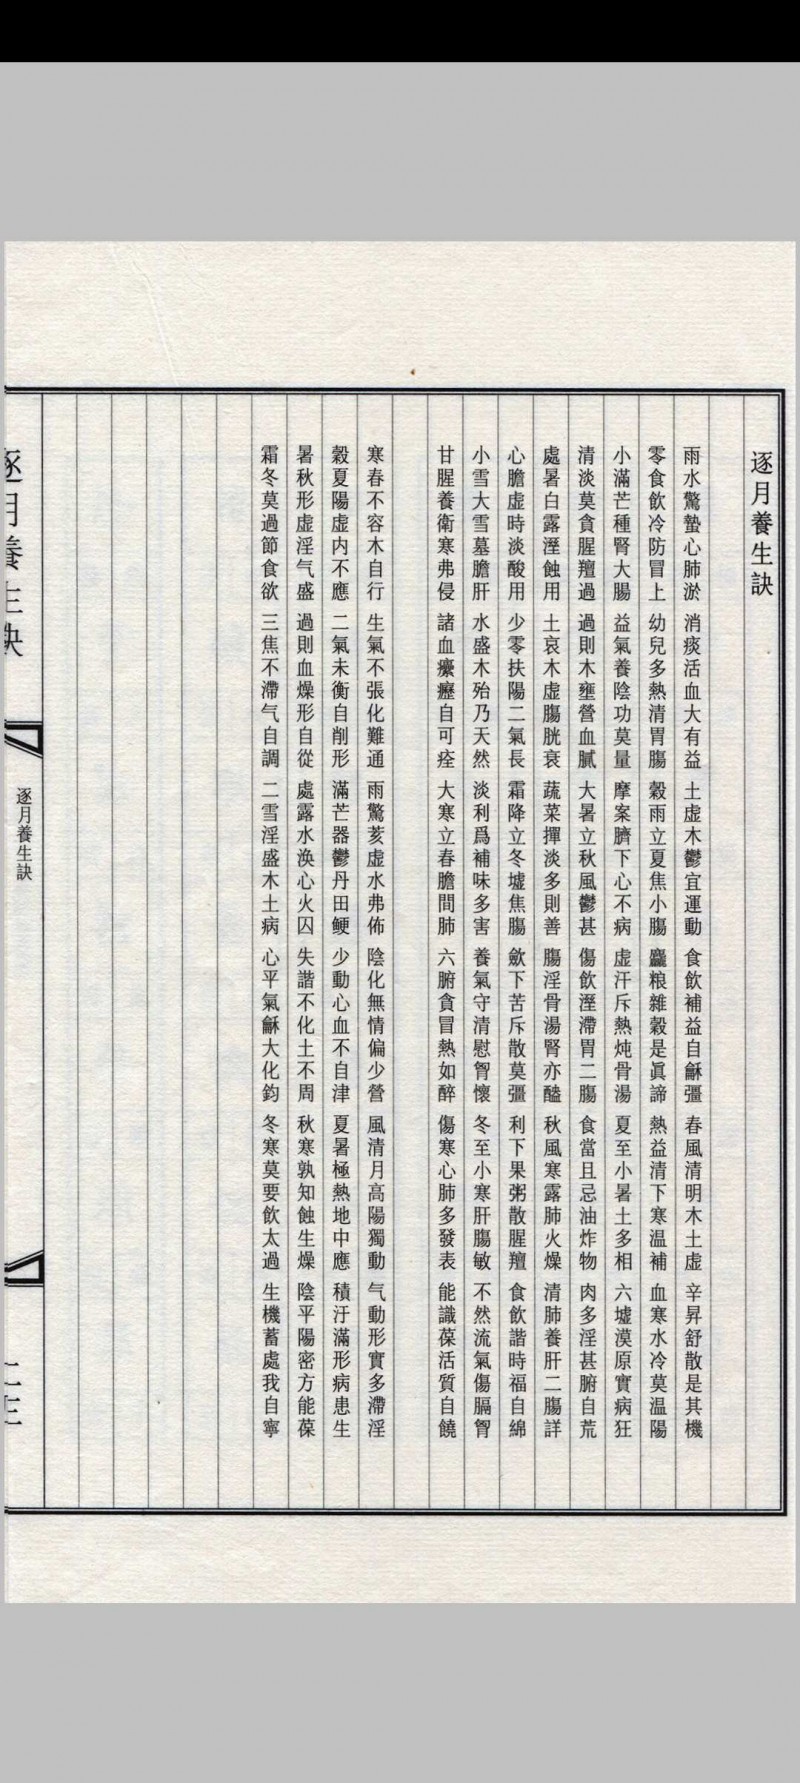 逐月養生訣
雨水驚蟄心肺淤 消痰活血大有益 土虛木鬱宜運動 食飲補益自龢彊 春風清明木土虛 辛昇舒散是其機
零食飲冷防冒上 幼兒多熱清胃腸 穀雨立夏焦小腸 麤粮雜穀是眞諦 熱益清下寒溫補 血寒水冷莫溫陽
小滿芒種腎大腸 益氣養陰功莫量 摩案臍下心不病 虛汗斥熱炖骨湯 夏至小暑土多相 六墟漠原實病狂
清淡莫貪腥羶過 過則木壅營血膩 大暑立秋風鬱甚 傷飲溼滯胃二腸 食當且忌油炸物 肉多淫甚腑自荒
處暑白露溼蝕用 土哀木虛腸胱衰 蔬菜撣淡多則善 腸淫骨湯腎亦醢 秋風寒露肺火燥 清肺養肝二腸詳
心膽虛時淡酸用 少零扶陽二氣長 霜降立冬墟焦腸 斂下苦斥散莫彊 利下果粥散腥羶 食飲諧時福自綿
小雪大雪墓膽肝 水盛木殆乃天然 淡利爲補味多害 養氣守清慰胷懷 冬至小寒肝腸敏 不然流氣傷膈胷
甘腥養衛寒弗侵 諸血癢癧自可痊 大寒立春膽間肺 六腑貪冒熱如醉 傷寒心肺多發表 能識葆活質自饒
寒春不容木自行 生氣不張化難通 雨驚荄虛水弗佈 陰化無情偏少營 風清月高陽獨動 气動形實多滯淫
穀夏陽虛内不應 二氣未衡自削形 滿芒器鬱丹田鯁 少動心血不自津 夏暑極熱地中應 積汙滿形病患生
暑秋形虛淫气盛 過則血燥形自從 處露水渙心火囚 失諧不化土不周 秋寒孰知蝕生燥 陰平陽密方能葆
霜冬莫過節食欲 三焦不滯气自調 二雪淫盛木土病 心平氣龢大化鈞 冬寒莫要飲太過 生機蓄處我自寧
逐月養生訣
逐月養生訣